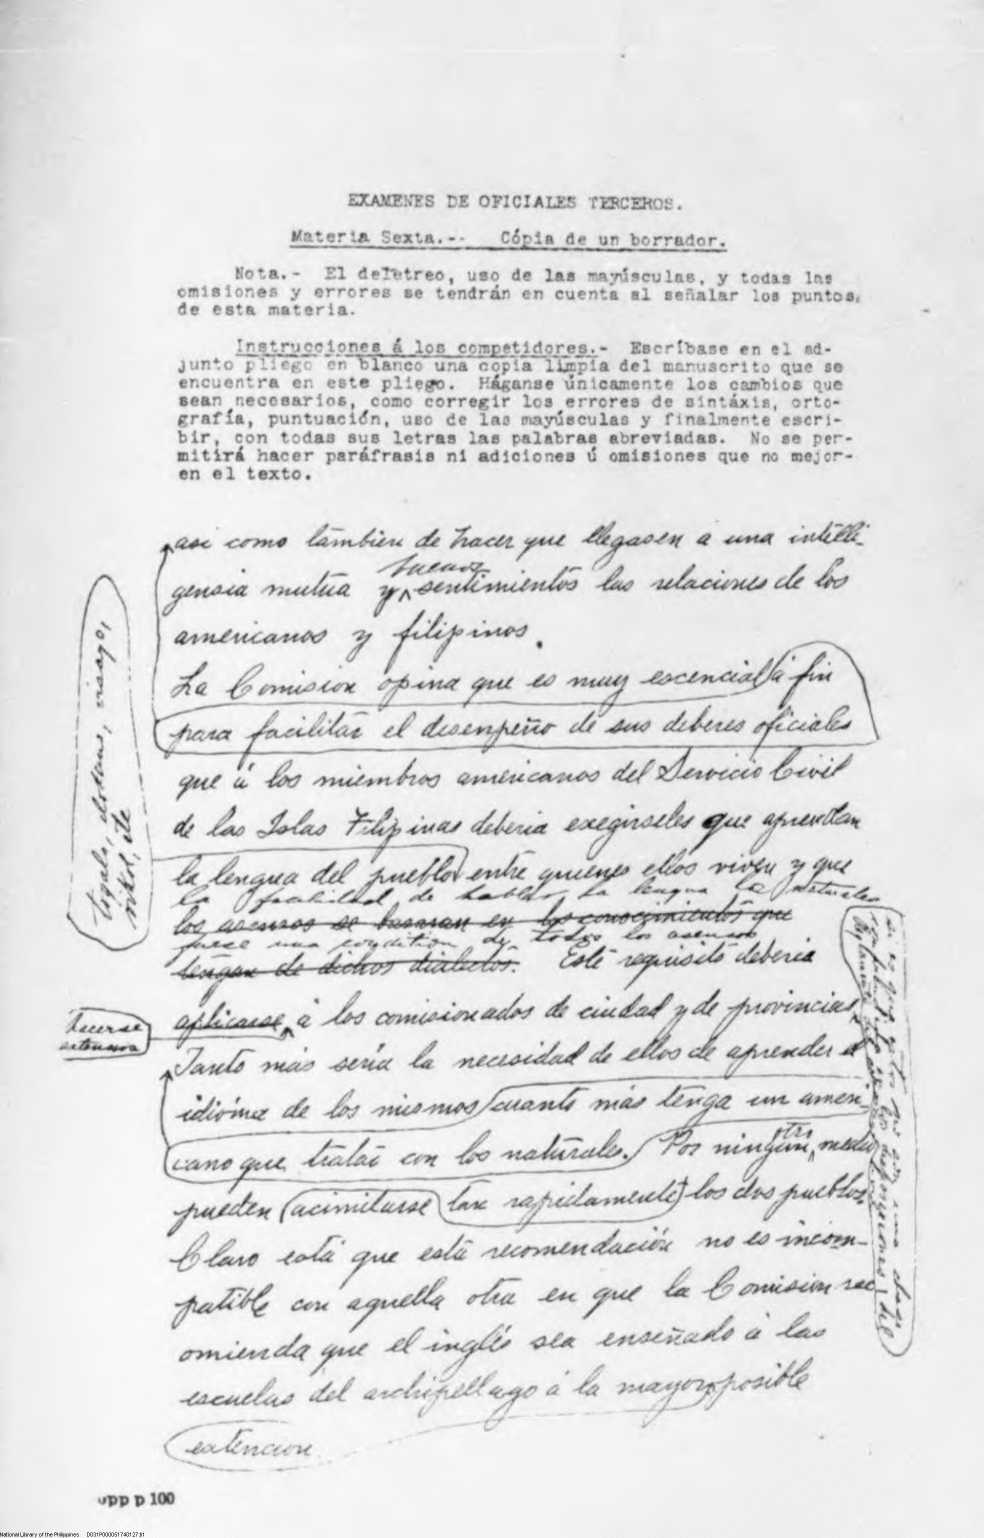 EXAMENES DE OFICIALES TERCEROS.
Materia Sexta.-- Cópia de un borrador.
Nota.- El deletreo, uso de las mayúsculas, y todas las
omisiones y errores se tendrán en cuenta al señalar los puntos
de esta materia.
Instrucciones á los competidores.- Escríbase en el ad-
junto pliego en blanco una copia limpia del manuscrito que se
encuentra en este pliego. Háganse únicamente los cambios que
sean necesarios, como corregir los errores de sintáxis, orto-
grafía, puntuación, uso de las mayúsculas y finalmente escri-
bir, con todas sus letras las palabras abreviadas. No se per-
mitirá hacer paráfrasis ni adiciones ú omisiones que no mejor-
en el texto.
asi como tambien de hacer que llegasen a una intelli-
buenos
gensia mutua y sentimientos las relaciones de los
americanos y filipinos.
La Comision opina que es muy escencial á fin
para facilitar el desenpeño de sus deberes oficiales
que á los miembros americanos del Servicio Civil
de las Islas Filipinas deberia exegirseles que aprendan
la lengua del pueblo entre quienes ellos viven y que
la facilidad de hablar la lengua la naturales
los ascensos se basaran en los conocimientos que
fuese una condition de todos los ascensos
tengan de dichos dialectos. Este requisito deberia
aplicarse á los comisionados de ciudad y de provincias
Tanto más seria la necesidad de ellos de aprender el
idióma de los mismos cuanto más tenga un ameri-
cano que tratar con los naturales. Por ningun medio
otro
pueden acimilarse tan rapidamente los dos pueblos
Claro está que está recomendación no es incom-
patible con aquella otra en que la Comision rec
omienda que el inglés sea enseñado á las
escuelas del archipellago á la mayor posible
extencion
tigalo, ilokano, visayo,
vikol, etc
hacerse
extensivo
opp p 100
National Library of the Philippines D031P00005174012781